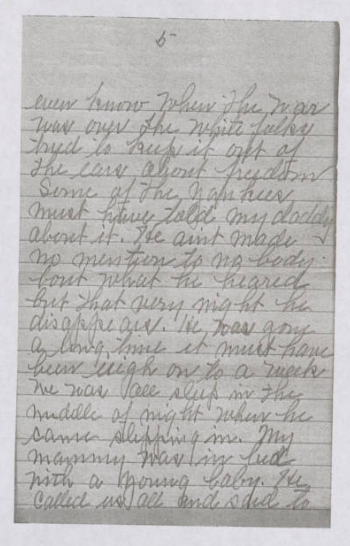 5
even know when the war
was over the white folks
tried to keep it out of
the ears about freedom
Some of the Yankees
must have told my daddy
about it. He aint made
no mention to no body
bout what he heared
but that very night he
disappears. He was gone
a long time it must have
been nigh on to a week
We was all sleep in the
middle of night when he
came slipping in. My
mammy was in bed
with a young baby. He
called us all and said to